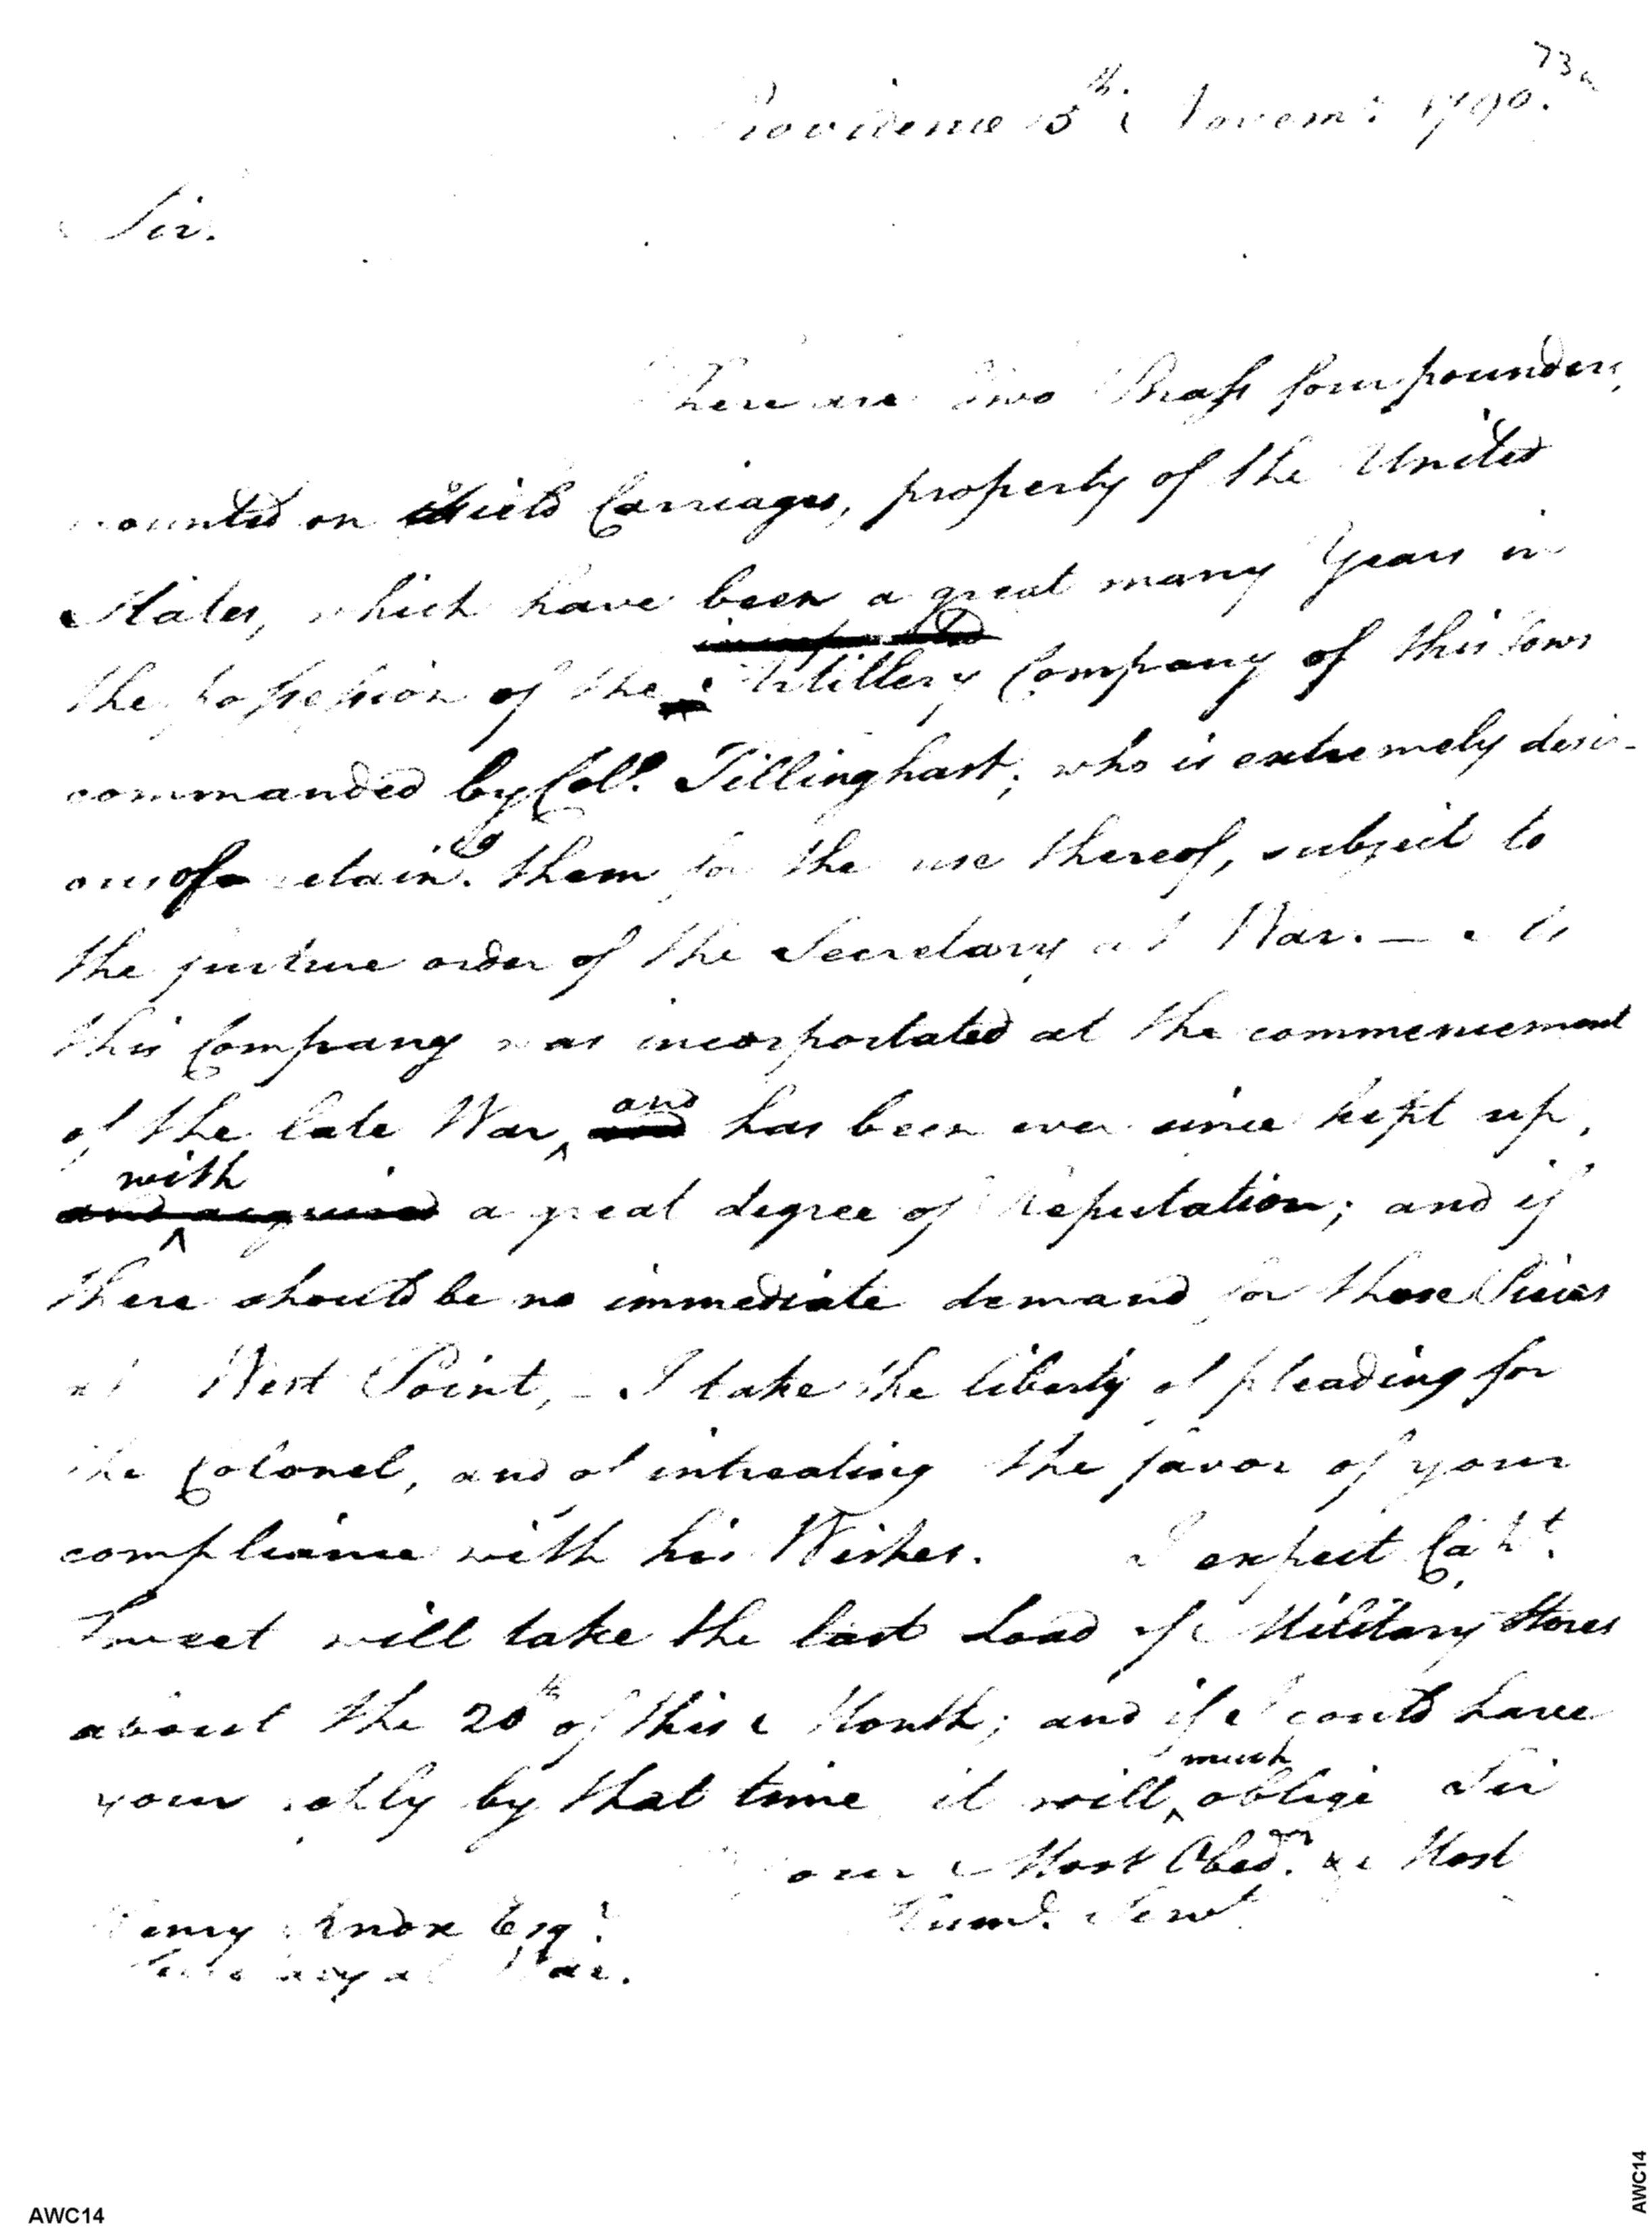 73a
Providence 5th. Novem: 1790.
Sir.
There are two Brass four pounders,
mounted on field Carriages, property of the United
States, which have been a great many Years in
the possession of the Artillery Company of this Town
commanded by Coll. Tillinghast; who is extremely desir-
ous of retaing. them for the use thereof, subject to
the further order of the Secretary at War. — As
this Company was incorportated at the commencement
of the late War, and has been ever since kept up,
with
and acquired a great degree of Reputation; and if
there should be no immediate demand for those Pieces
at West Point, - I take the liberty of pleading for
the Colonel, and of intreating the favor of your
compliance with his Wishes. I expect Capt.
will take the last Load of Military Stores
about the 20th of this Month; and if I could have
your reply by that time it will much oblige Sir
Your Most Obed. & Most
Humb. Servt
Henry Knox Esqr.
Secretary at War.
AWC14
AWC14